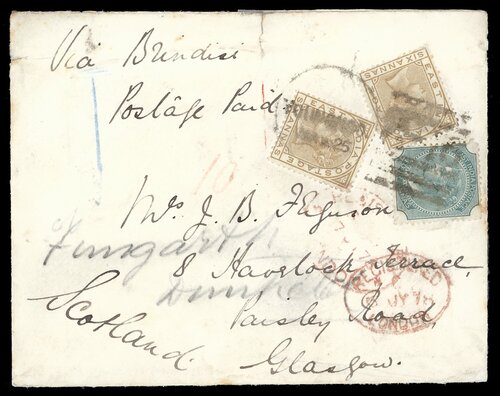 Via Brindisi
Postage Paid
EAST INDIA POSTAGE
SIX ANNAS
EAST INDIA POSTAGE
SIX ANNAS
Mrs J. B. Ferguson
8 Havelock Terrace,
Paisley Road,
Glasgow.
Scotland.
REGISTERED
LONDON